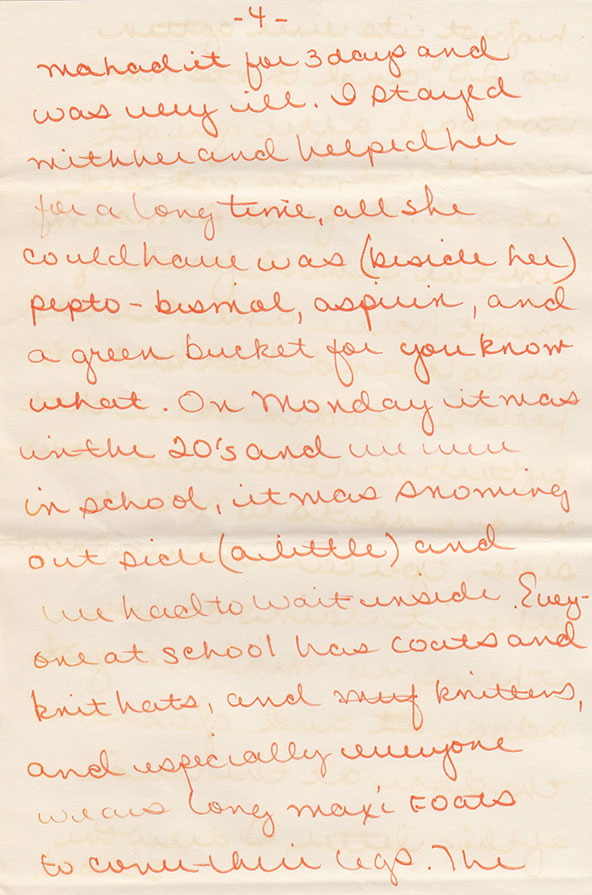 - 4 -
ma had it for 3 days and
was very ill. I stayed
with her and helped her
for a long time, all she
could have was (beside her)
pepto-bismol, aspirin, and
a green bucket for you know
what. On Monday it was
in the 20's and we were
in school, it was snowing
out side (a little) and
we had to wait inside. Every-
one at school has coats and
knit hats, and knittens,
and especially everyone
wears long maxi coats
to cover their legs. The